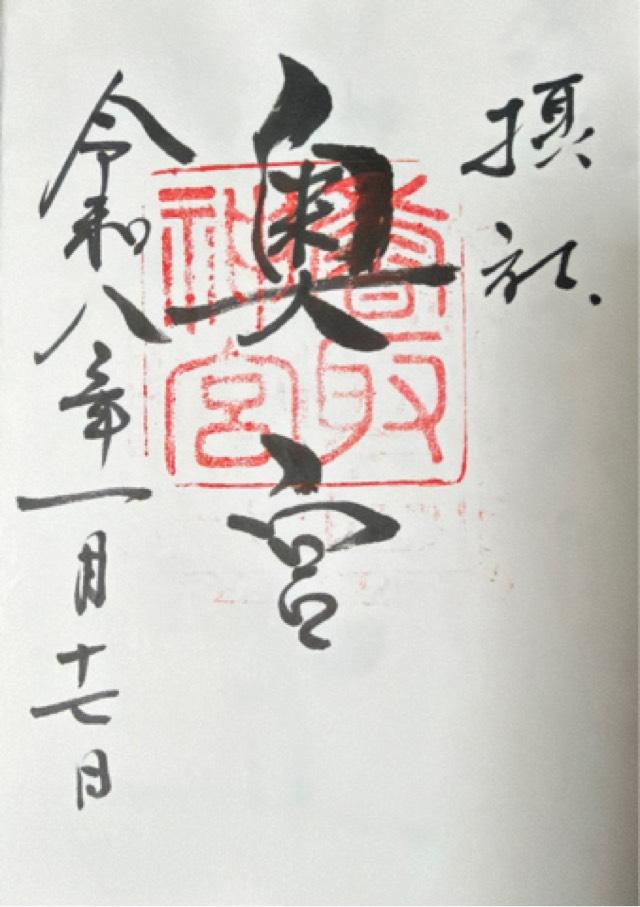 摂社
奥宮
香取
神宮
令和八年一月十七日